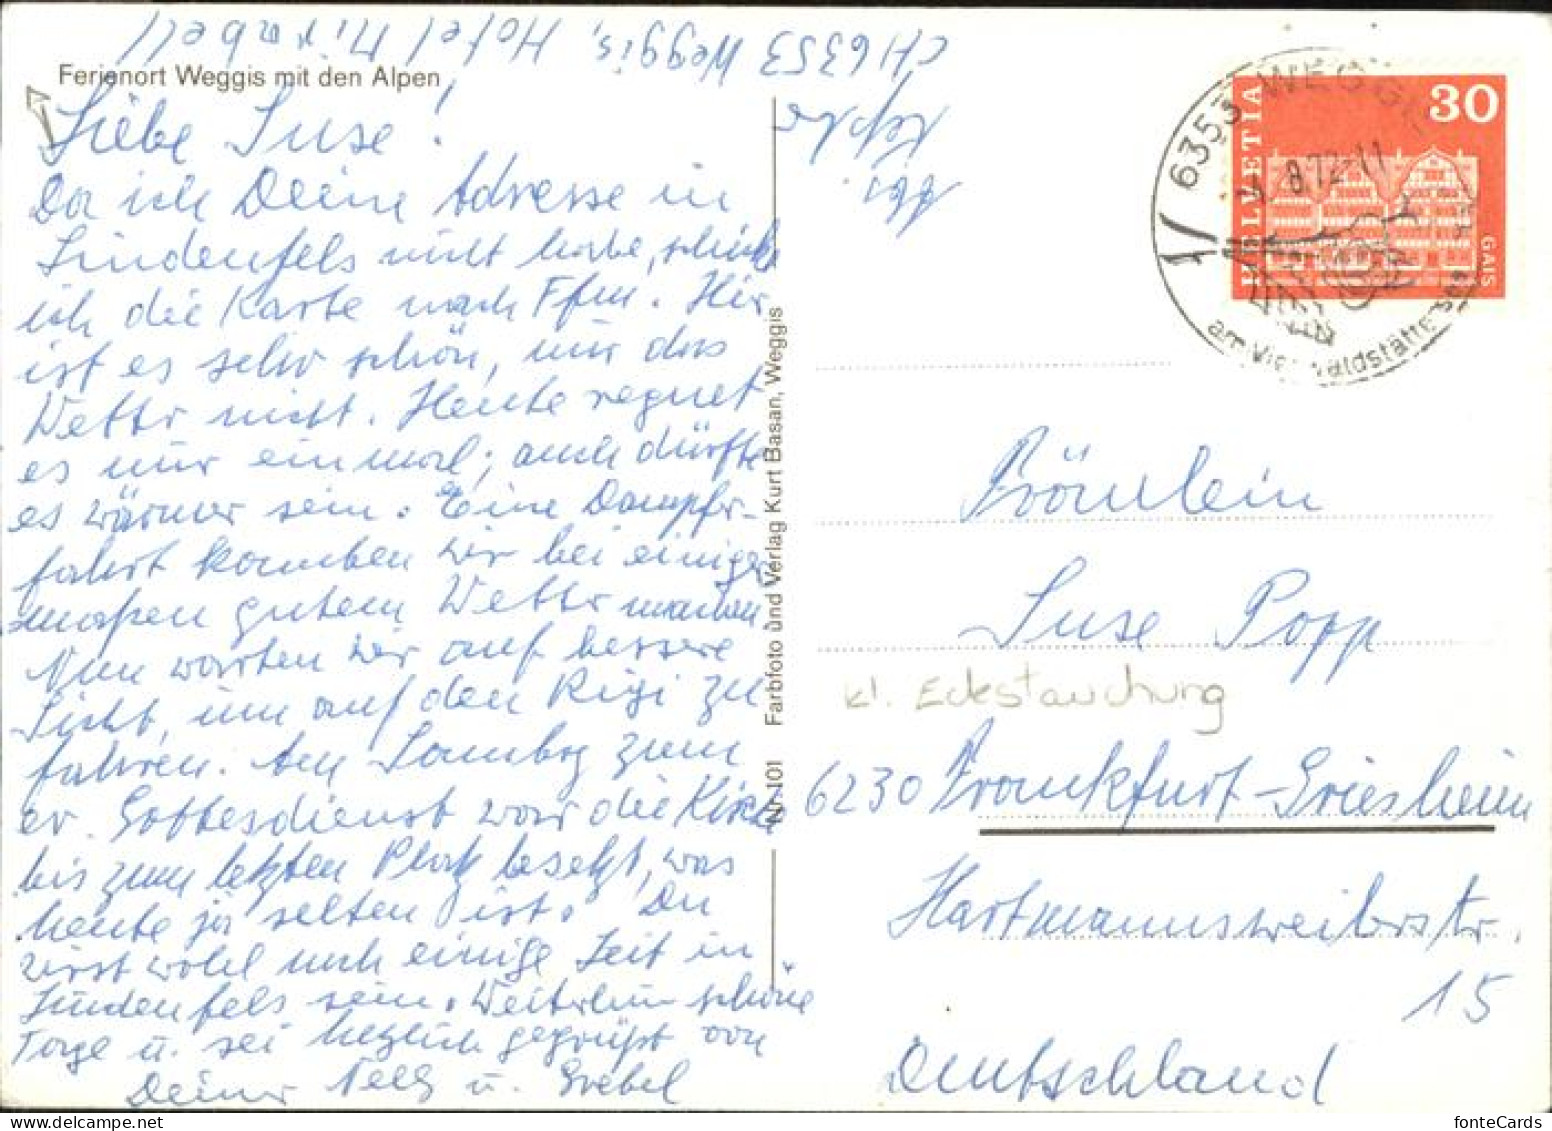 CH 6353 Weggis, Hotel Mirabell
Ferienort Weggis mit den Alpen
Liebe Suse!
Da ich Deine Adresse in
Lindenfels nicht habe, schicke
ich die Karte nach Ffm. Hier
ist es sehr schön, nur das
Wetter nicht. Heute regnet
es nur einmal; auch dürfte
es wärmer sein. Eine Dampfer-
fahrt konnten wir bei einiger
maßen gutem Wetter machen
Nun warten wir auf bessere
Sicht, um auf den Rigi zu
fahren. Am Sonntag zum
ev. Gottesdienst war die Kirche
bis zum letzten Platz besetzt, was
heute ja selten ist. Du
wirst wohl noch einige Zeit in
Lindenfels sein. Weiterhin schöne
Tage u. sei herzlich gegrüßt von
Deiner u.
Nr. 101 Farbfoto und Verlag Kurt Basan, Weggis
6353 WEGGIS
8.72-11
am Vierwaldstättersee
HELVETIA
30
GAIS
Fräulein
Suse Popp
kl. Eckstauchung
6230 Frankfurt-Griesheim
Hartmannsweilerstr.
15
Deutschland
fonteCards